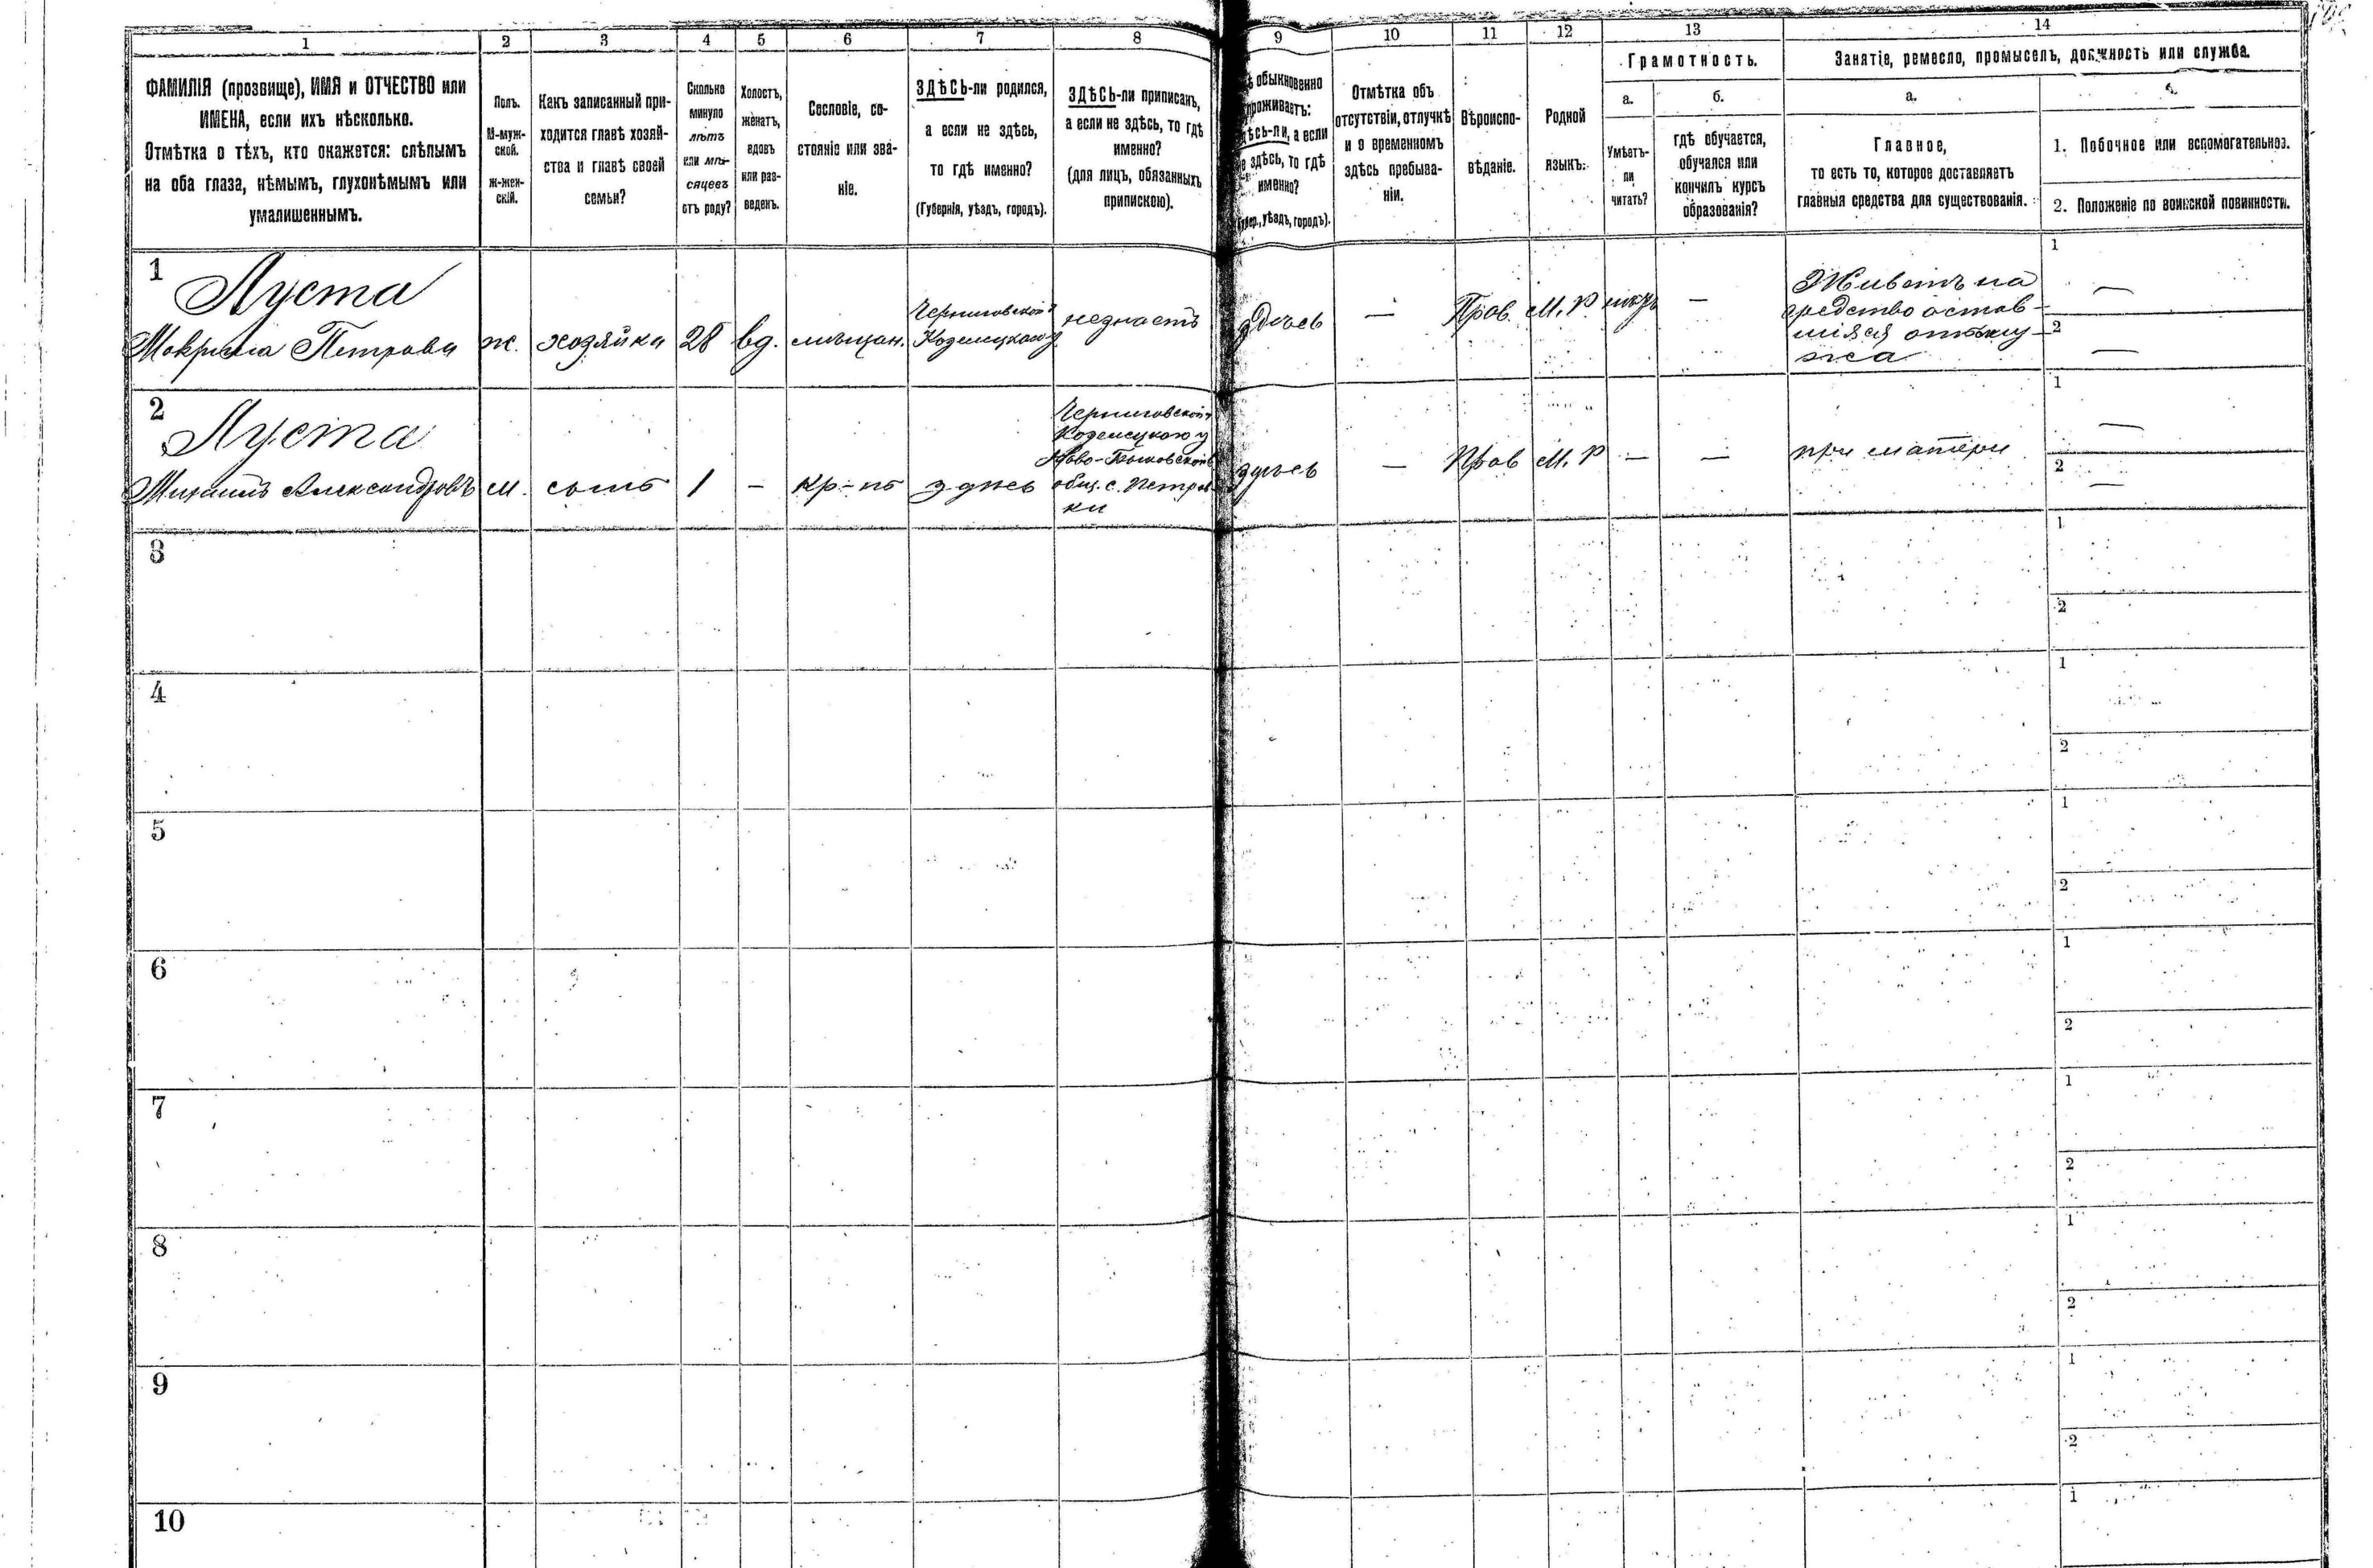 1 2 3 4 5 6 7 8 9 10 11 12 13 14
ФАМИЛІЯ (прозвище), ИМЯ и ОТЧЕСТВО или
ИМЕНА, если ихъ нѣсколько.
Отмѣтка о тѣхъ, кто окажется: слѣпымъ
на оба глаза, нѣмымъ, глухонѣмымъ или
умалишеннымъ.
Полъ.
М-муж-
ской.
Ж-жен-
скій.
Какъ записанный при-
ходится главѣ хозяй-
ства и главѣ своей
семьи?
Сколько
минуло
лѣтъ
или мѣ-
сяцевъ
отъ роду?
Холостъ,
женатъ,
вдовъ
или раз-
веденъ.
Сословіе, со-
стояніе или зва-
ніе.
ЗДѢСЬ-ли родился,
а если не здѣсь,
то гдѣ именно?
(Губернія, уѣздъ, городъ).
ЗДѢСЬ-ли приписанъ,
а если не здѣсь, то гдѣ
именно?
(для лицъ, обязанныхъ
припискою).
обыкновенно
проживаетъ:
здѣсь-ли, а если
не здѣсь, то гдѣ
именно?
(Губер., уѣздъ, городъ).
Отмѣтка объ
отсутствіи, отлучкѣ
и о временномъ
здѣсь пребыва-
ніи.
Вѣроиспо-
вѣданіе.
Родной
языкъ.
Грамотность.
а.
Умѣетъ-
ли
читать?
б.
гдѣ обучается,
обучался или
кончилъ курсъ
образованія?
Занятіе, ремесло, промыселъ, должность или служба.
а.
Главное,
то есть то, которое доставляетъ
главныя средства для существованія.
1. Побочное или вспомогательноз.
2. Положеніе по воинской повинности.
1
Луста
Мокрина Петрова
ж.
хозяйка
28
вд.
мѣщан.
Черниговской г
Козелецкаго у
незнаетъ
здѣсь
—
Прав.
М. Р
—
Живетъ на
средство остав-
шіяся отъ му-
жа
1
—
2
—
2
Луста
Михаилъ Александровъ
м.
сынъ
1
—
кр-нъ
здѣсь
Черниговской г
Козелецкого у
Ново-Быковской в
общ. с. Петров
ки
здѣсь
—
Прав
М. Р
—
—
при матери
1
—
2
—
3
1
2
4
1
2
5
1
2
6
1
2
7
1
2
8
1
2
9
1
2
10
1